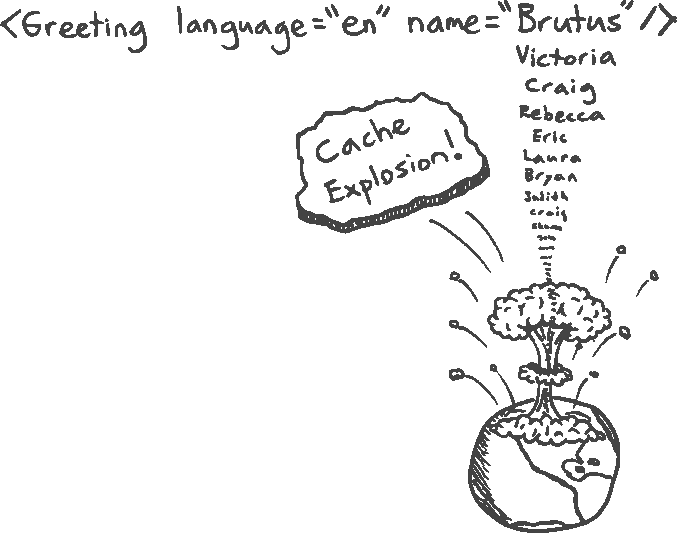 <Greeting language="en" name="Brutus" />
Victoria
Craig
Rebecca
Eric
Laura
Bryan
Judith
Craig
Cache
Explosion!